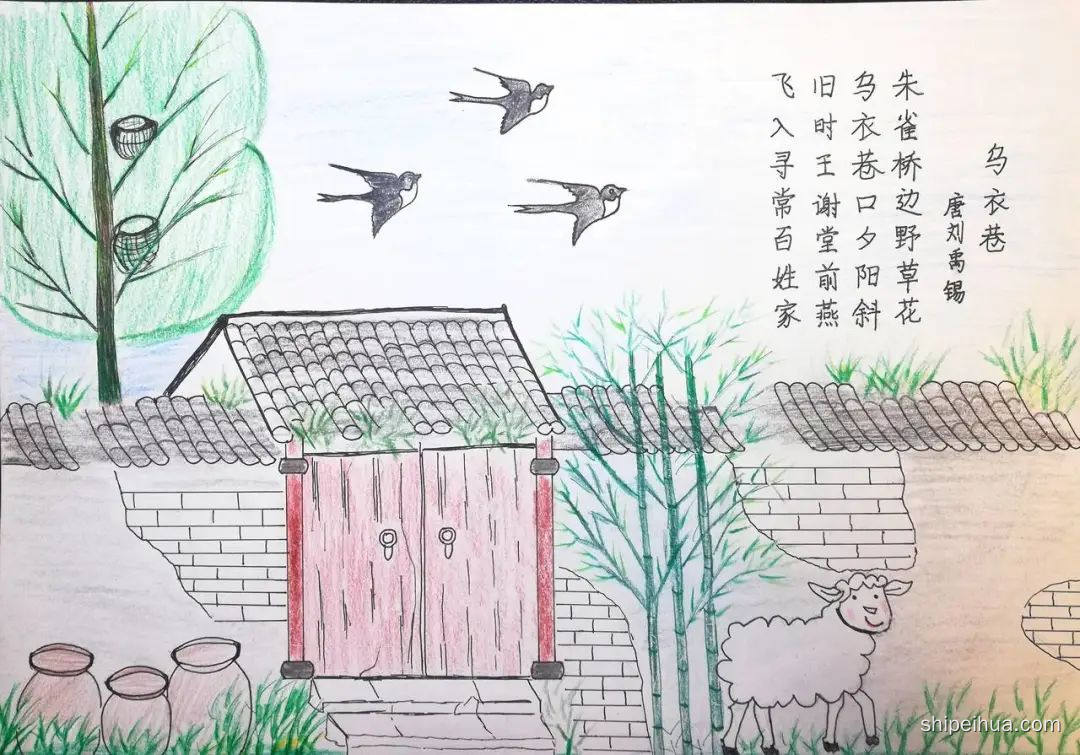 乌衣巷
唐刘禹锡
朱雀桥边野草花
乌衣巷口夕阳斜
旧时王谢堂前燕
飞入寻常百姓家
shipeihua.com